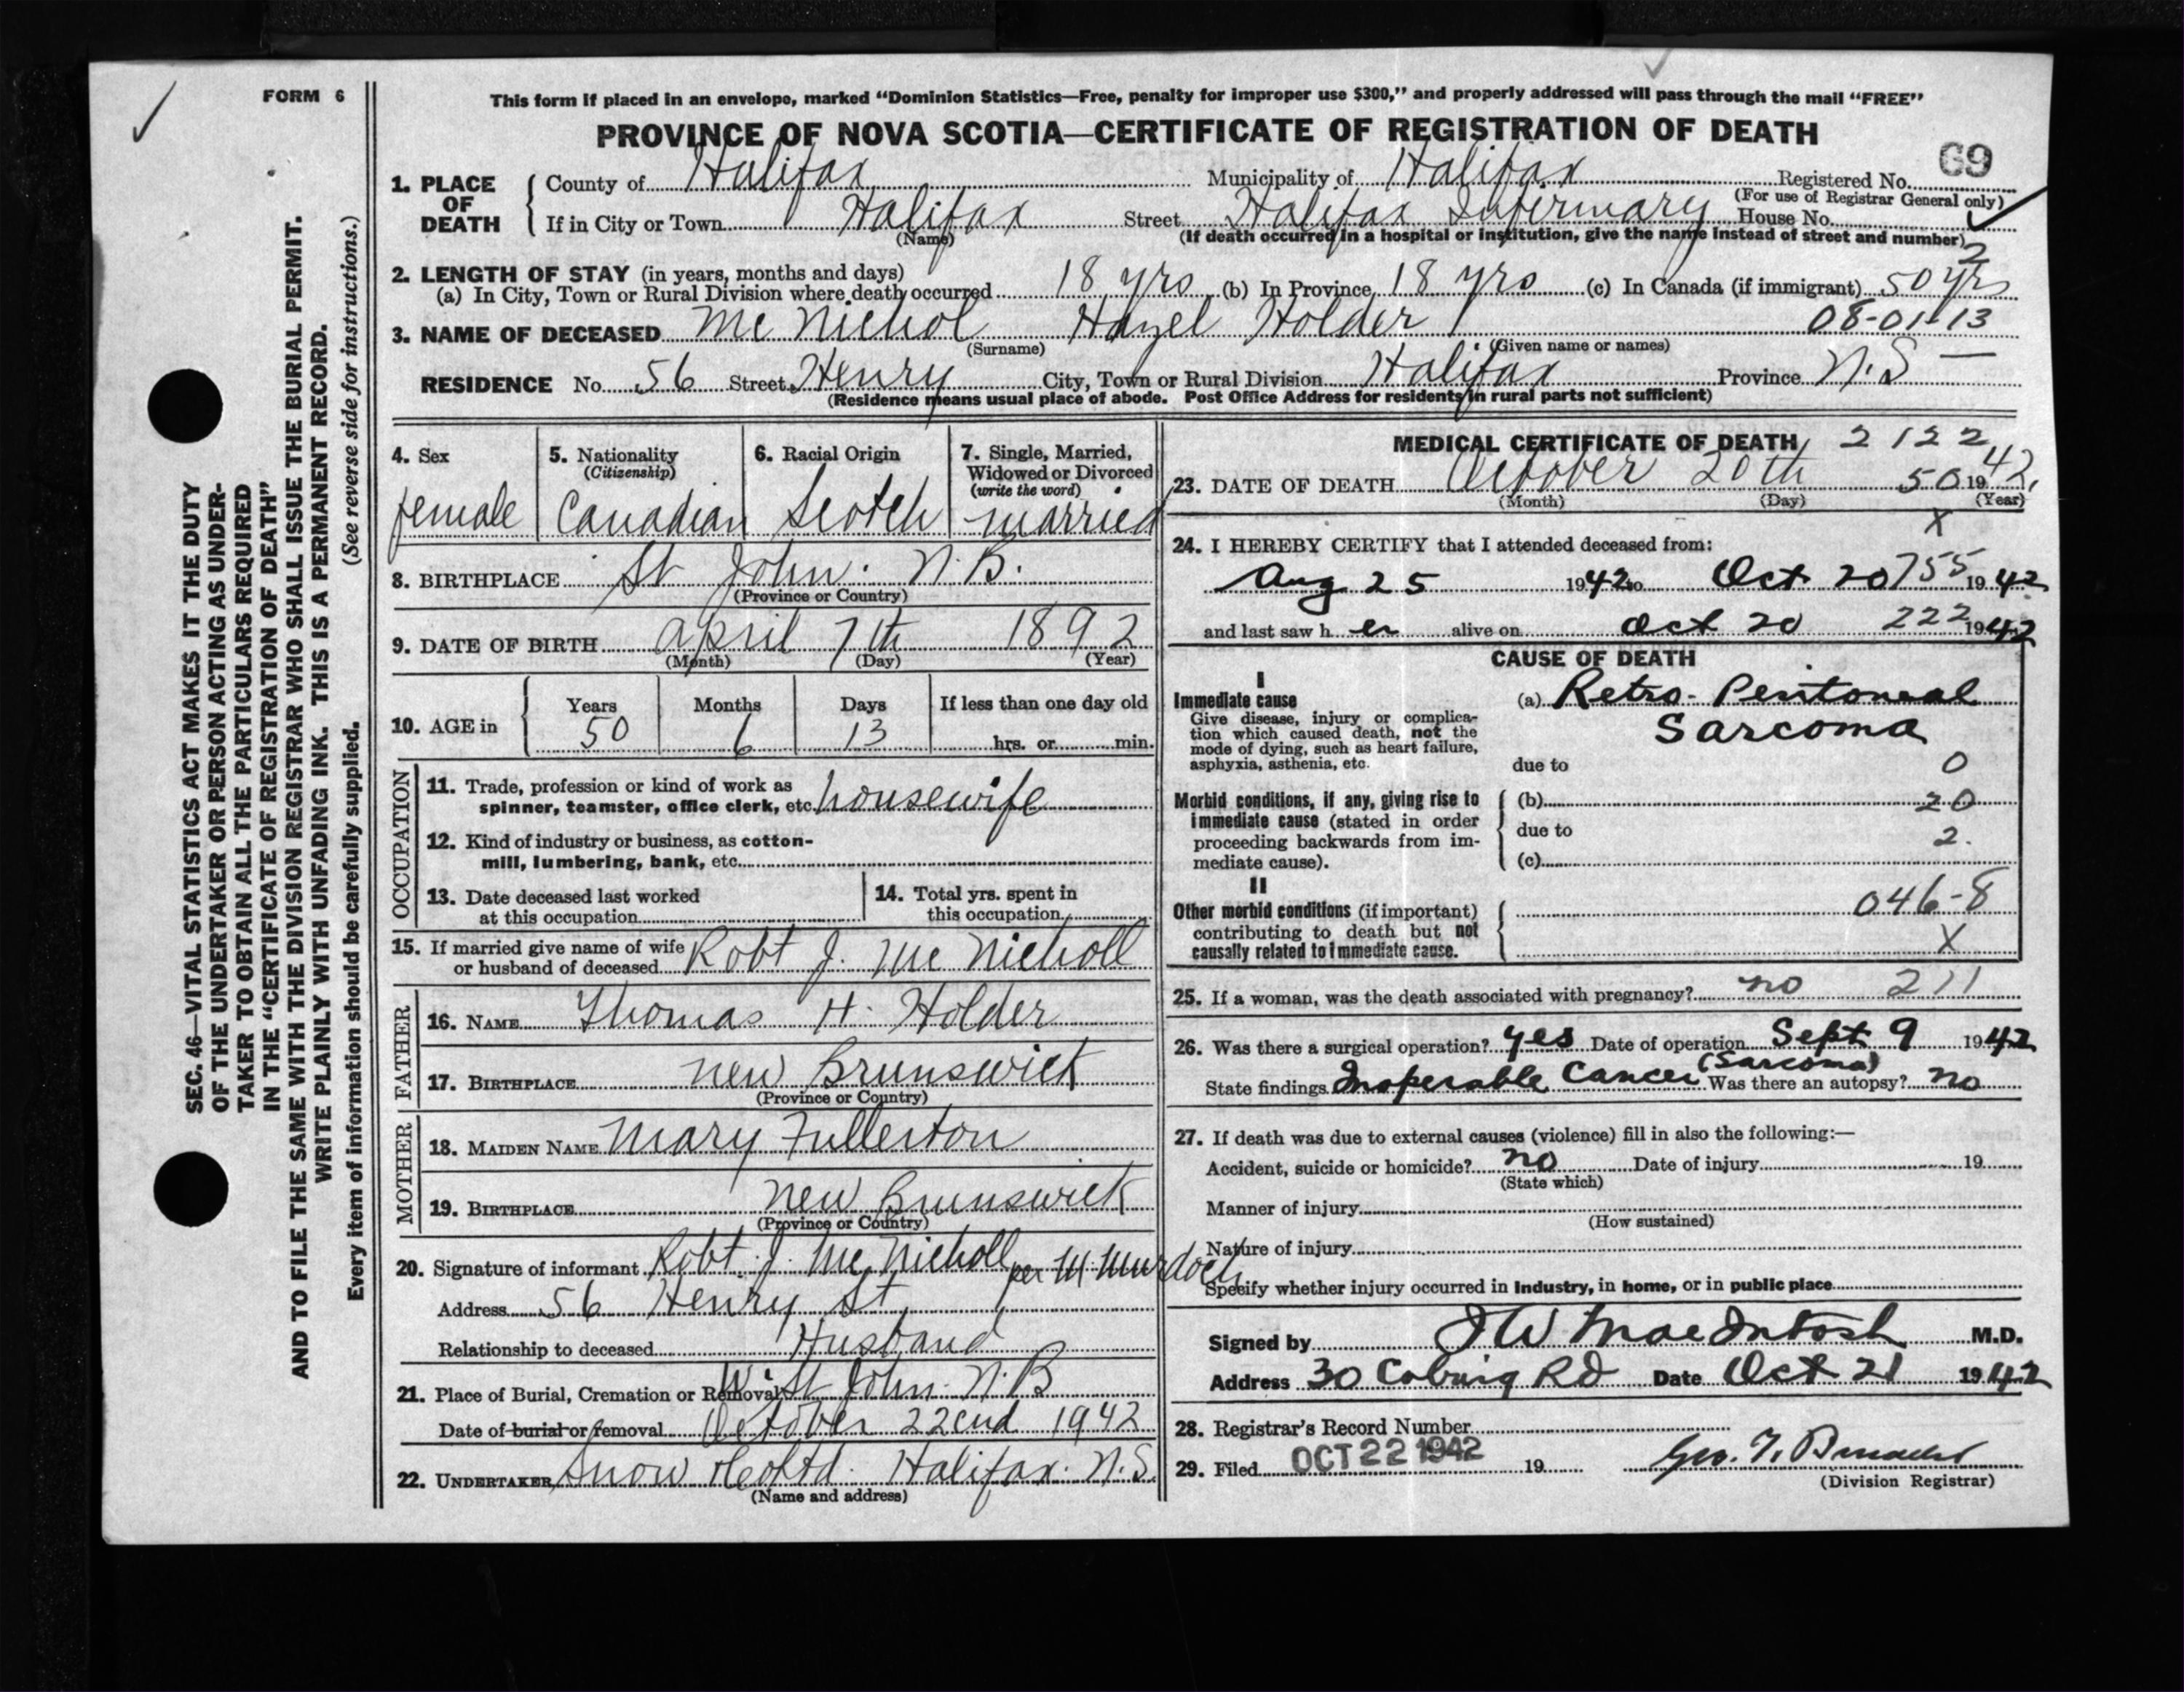 FORM 6
This form if placed in an envelope, marked “Dominion Statistics—Free, penalty for improper use $300,” and properly addressed will pass through the mail “FREE”
PROVINCE OF NOVA SCOTIA—CERTIFICATE OF REGISTRATION OF DEATH
69
1. PLACE OF DEATH County of Halifax Municipality of Halifax Registered No.
(For use of Registrar General only)
If in City or Town Halifax Street Halifax Infirmary House No.
(Name) (If death occurred in a hospital or institution, give the name instead of street and number)
2
2. LENGTH OF STAY (in years, months and days)
(a) In City, Town or Rural Division where death occurred 18 yrs (b) In Province 18 yrs (c) In Canada (if immigrant) 50 yrs
3. NAME OF DECEASED Mc Nichol Hazel Holder 08-01-13
(Surname) (Given name or names)
RESIDENCE No. 56 Street Henry City, Town or Rural Division Halifax Province N.S —
(Residence means usual place of abode. Post Office Address for residents in rural parts not sufficient)
SEC. 46—VITAL STATISTICS ACT MAKES IT THE DUTY
OF THE UNDERTAKER OR PERSON ACTING AS UNDER-
TAKER TO OBTAIN ALL THE PARTICULARS REQUIRED
IN THE “CERTIFICATE OF REGISTRATION OF DEATH”
AND TO FILE THE SAME WITH THE DIVISION REGISTRAR WHO SHALL ISSUE THE BURIAL PERMIT.
WRITE PLAINLY WITH UNFADING INK. THIS IS A PERMANENT RECORD.
Every item of information should be carefully supplied. (See reverse side for instructions.)
4. Sex 5. Nationality 6. Racial Origin 7. Single, Married,
(Citizenship) Widowed or Divorced
(write the word)
female Canadian Scotch married
8. BIRTHPLACE St John. N.B.
(Province or Country)
9. DATE OF BIRTH April 7th 1892
(Month) (Day) (Year)
10. AGE in Years Months Days If less than one day old
50 6 13 hrs. or min.
OCCUPATION
11. Trade, profession or kind of work as
spinner, teamster, office clerk, etc. housewife
12. Kind of industry or business, as cotton-
mill, lumbering, bank, etc.
13. Date deceased last worked
at this occupation
14. Total yrs. spent in
this occupation
15. If married give name of wife
or husband of deceased Robt J. Mc Nicholl
FATHER
16. NAME Thomas H. Holder
17. BIRTHPLACE New Brunswick
(Province or Country)
MOTHER
18. MAIDEN NAME Mary Fullerton
19. BIRTHPLACE New Brunswick
(Province or Country)
20. Signature of informant Robt. J. Mc Nicholl per M Murdoch
Address 56 Henry St
Relationship to deceased Husband
21. Place of Burial, Cremation or Removal W. St John. N.B
Date of burial or removal October 22cnd 1942
22. UNDERTAKER Snow & Co Ltd. Halifax. N.S.
(Name and address)
MEDICAL CERTIFICATE OF DEATH 2122
23. DATE OF DEATH October 20th 50 1942.
(Month) (Day) (Year)
X
24. I HEREBY CERTIFY that I attended deceased from:
Aug 25 1942 to Oct 20 755 1942
and last saw her alive on Oct 20 222 1942
CAUSE OF DEATH
I
Immediate cause
Give disease, injury or complica-
tion which caused death, not the
mode of dying, such as heart failure,
asphyxia, asthenia, etc.
(a) Retro-Peritoneal
Sarcoma
due to 0
Morbid conditions, if any, giving rise to
immediate cause (stated in order
proceeding backwards from im-
mediate cause).
(b) 20
due to 2.
(c)
II
Other morbid conditions (if important)
contributing to death but not
causally related to immediate cause.
046-8
X
25. If a woman, was the death associated with pregnancy? no 211
26. Was there a surgical operation? yes Date of operation Sept 9 1942
State findings Inoperable Cancer (Sarcoma) Was there an autopsy? no
27. If death was due to external causes (violence) fill in also the following:—
Accident, suicide or homicide? no Date of injury 19
(State which)
Manner of injury
(How sustained)
Nature of injury
Specify whether injury occurred in industry, in home, or in public place
Signed by J W MacIntosh M.D.
Address 30 Coburg Rd Date Oct 21 1942
28. Registrar's Record Number
29. Filed OCT 22 1942 19
(Division Registrar)